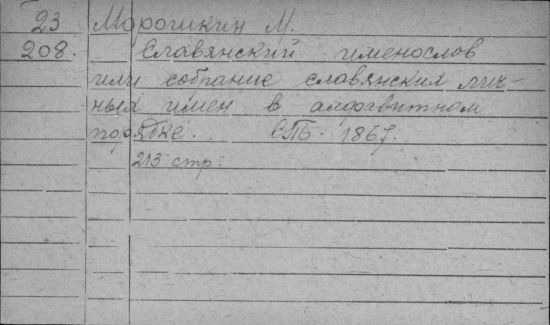 23 Морошкин М.
208. Славянский именослов
или собрание славянских лич-
ных имен в алфавитном
порядке. СПБ. 1867.
213 стр.